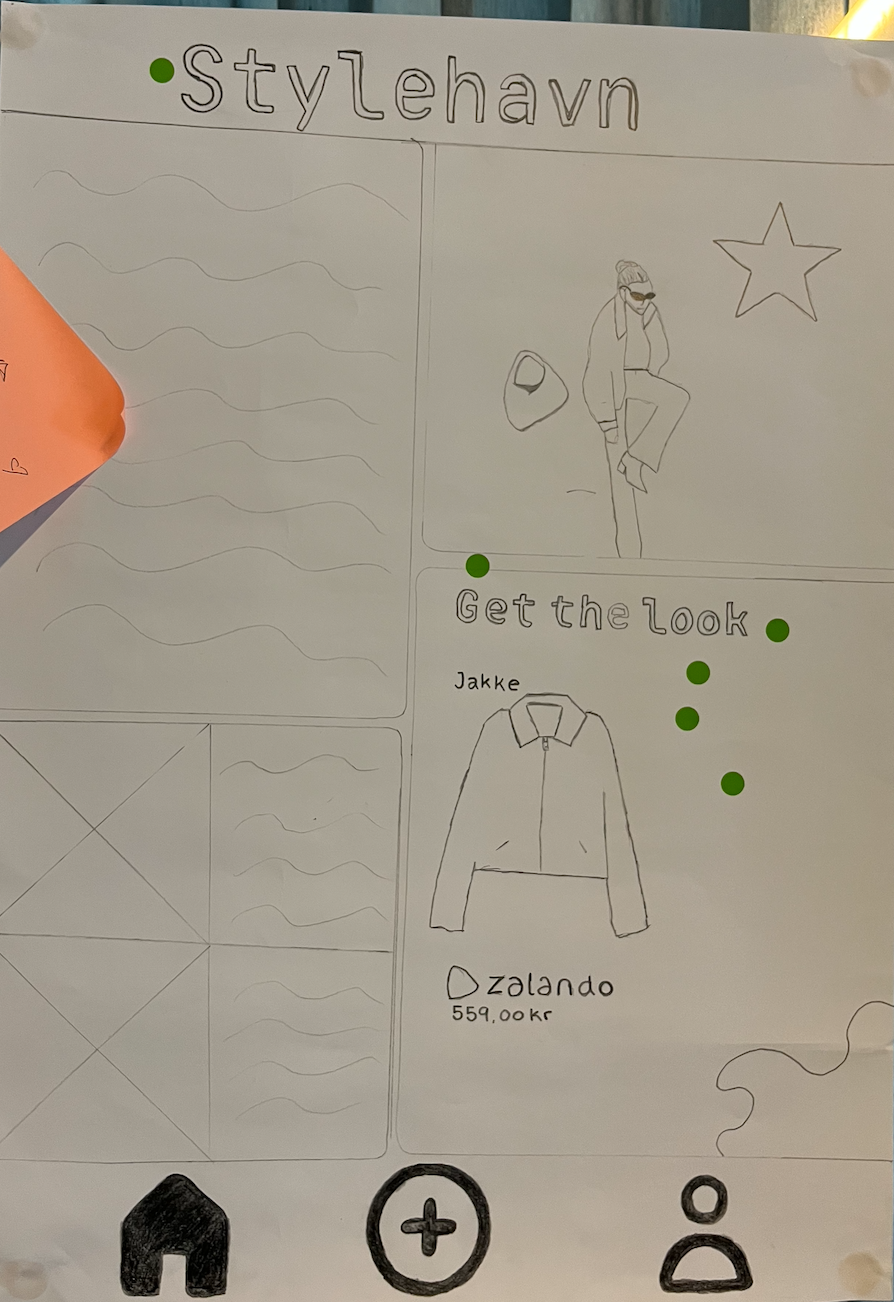 Stylehavn
Get the look
Jakke
zalando
559,00 kr